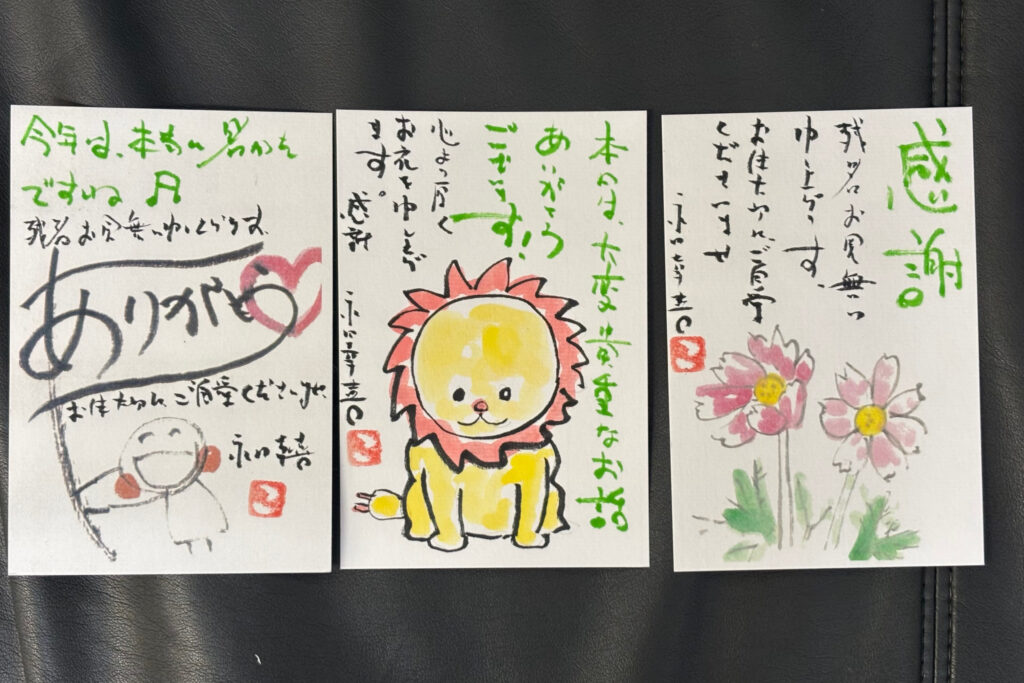 今年は、本当に暑かった
ですね
残暑お見舞い申し上げます。
ありがとう
お体大切に、ご自愛くださいませ。
本日は、大変貴重なお話
ありがとう
ございます!
心よっ厚く
お礼を申し上げ
ます。
感謝
感謝
残暑お見舞い
申し上げます。
お体大切にご自愛
くださいませ